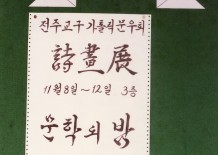 전주교구 가톨릭문우회
詩畫展
11월8일~12일 3층
문학의 밤